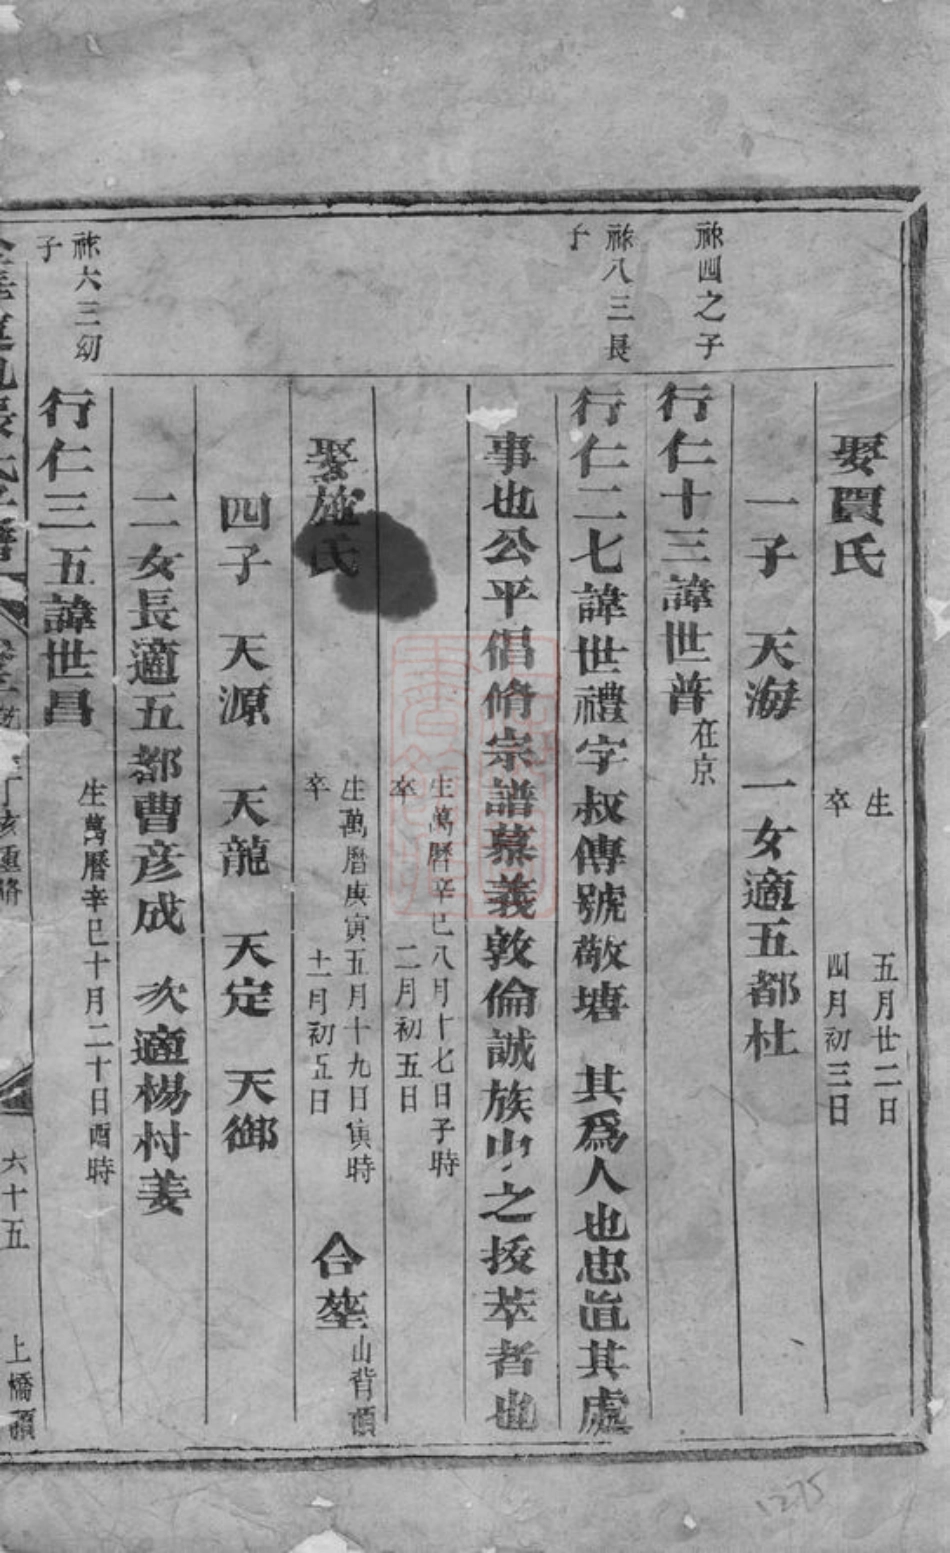 娶賈氏 生 五月廿二日
卒 四月初三日
一子 天海 一女適五都杜
祢四之子
行仁十三諱世普 在京
祢八三長子
行仁二七諱世禮字叔傳號敬塘 其爲人也忠直其處
事也公平倡脩宗譜慕義敦倫誠族中之拔萃者也
生萬曆辛巳八月十七日子時
卒 二月初五日
娶施氏 生萬曆庚寅五月十九日寅時
卒 十一月初五日
合塋 山背頭
四子 天源 天龍 天定 天御
二女長適五都曹彦成 次適楊村姜
祢六三幼子
行仁三五諱世昌 生萬曆辛巳十月二十日酉時
氏 丁亥重脩 六十五 上橋頭
1275